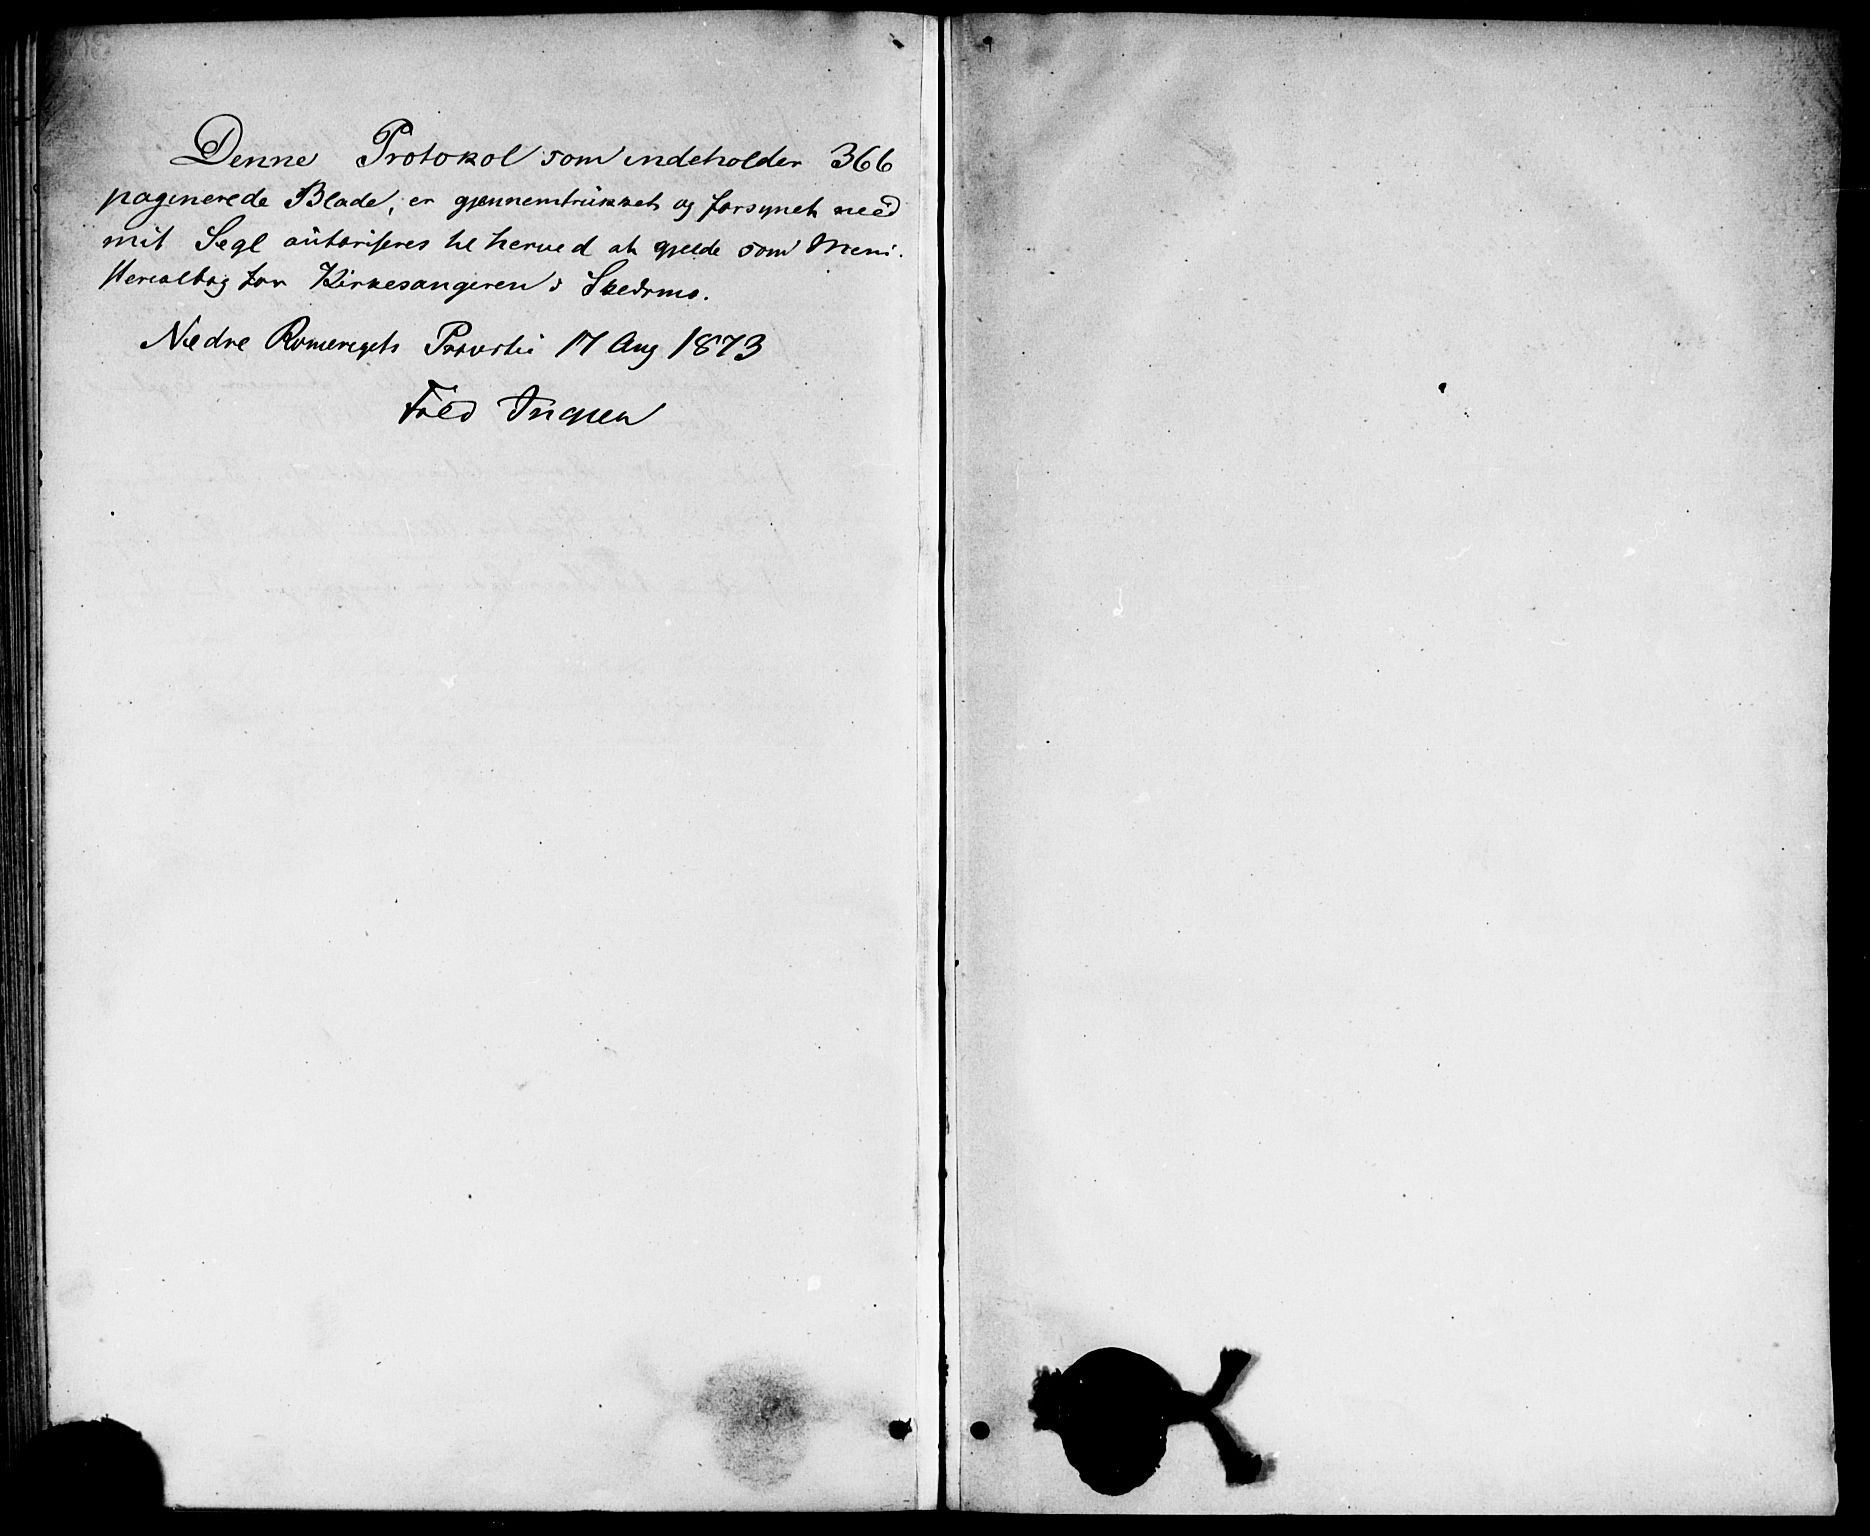 Denne Protokol som indeholder 366
paginerede Blade, er gjennemtrukket og forsynet med
mit Segl autoriseres til herved at gjelde som Mini-
sterialbog for Kirkesangeren i Skedsmo.
Nedre Romerigets Provsti 17 Aug 1873